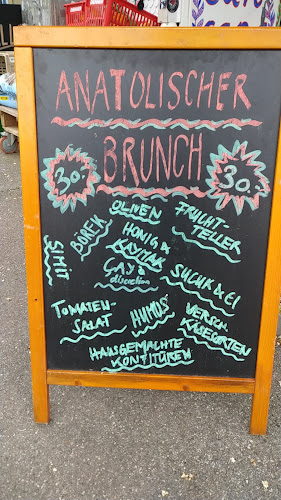 ANATOLISCHER
BRUNCH
30.-
30.-
SIMIT
BÖREK
OLIVEN
HONIG &
KAYMAK
FRUCHT-
TELLER
ÇAY à
discretion
SUCUK & EI
TOMATEN-
SALAT
HUMUS
VERSCH.
KÄSESORTEN
HAUSGEMACHTE
KONFITÜREN